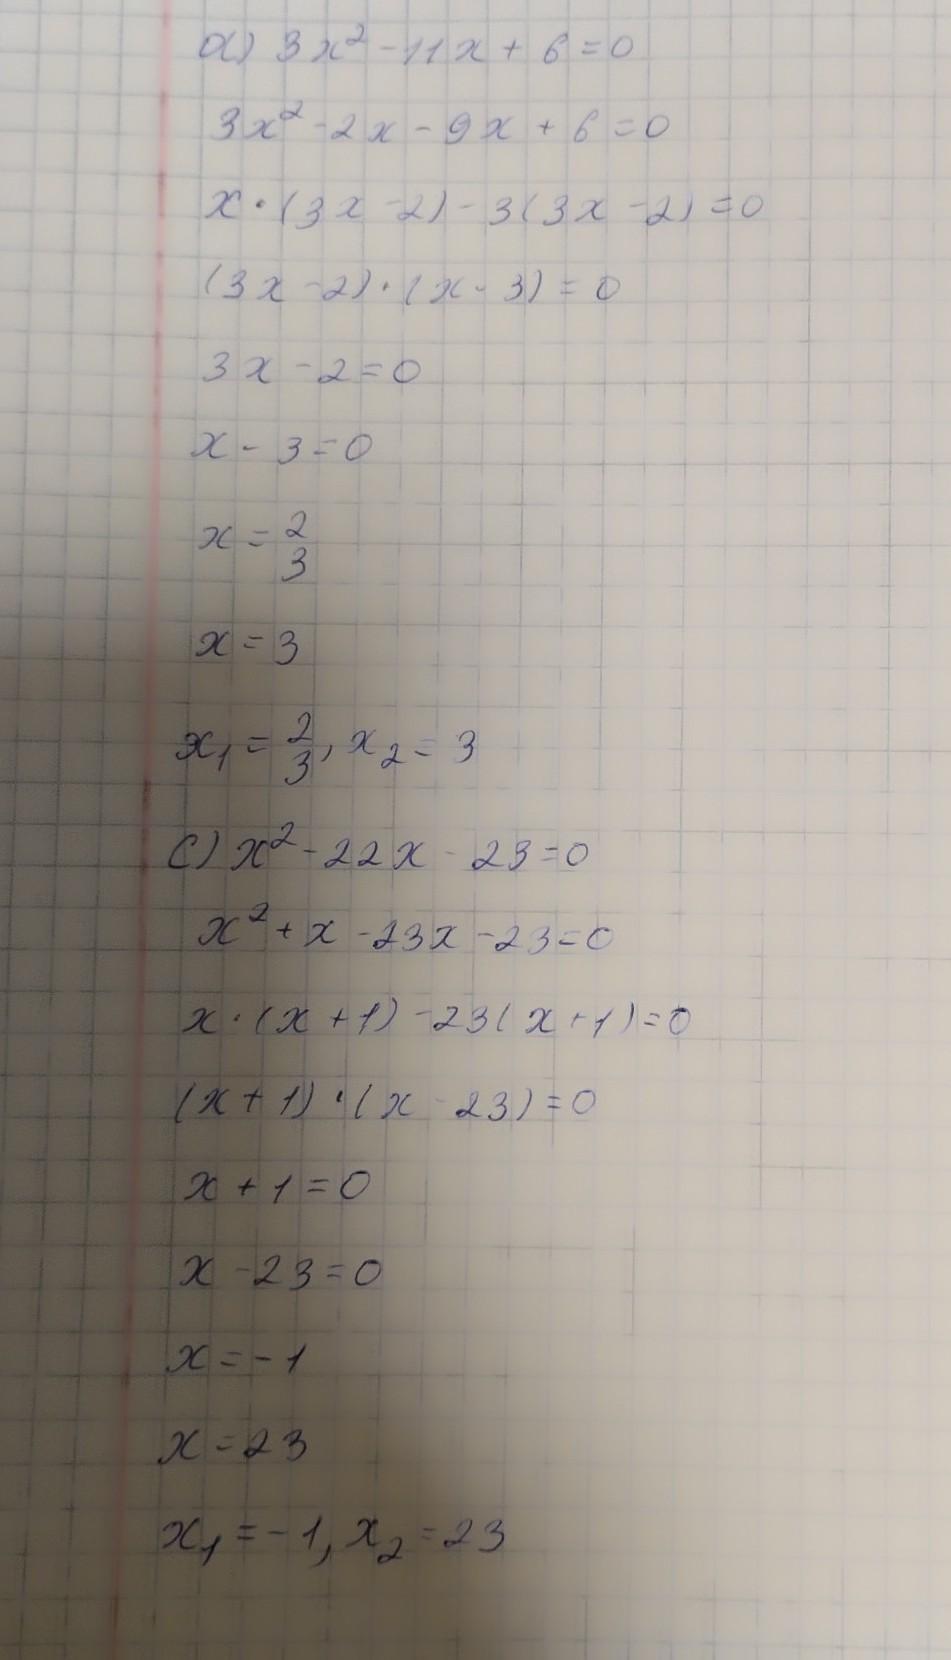 a) 3x² - 11x + 6 = 0
3x² - 2x - 9x + 6 = 0
x · (3x - 2) - 3(3x - 2) = 0
(3x - 2) · (x - 3) = 0
3x - 2 = 0
x - 3 = 0
x = 2/3
x = 3
x₁ = 2/3, x₂ = 3
c) x² - 22x - 23 = 0
x² + x - 23x - 23 = 0
x · (x + 1) - 23(x + 1) = 0
(x + 1) · (x - 23) = 0
x + 1 = 0
x - 23 = 0
x = -1
x = 23
x₁ = -1, x₂ = 23